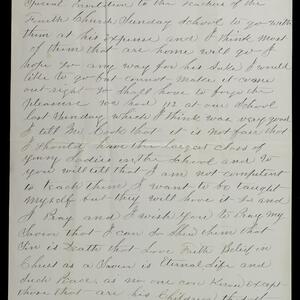 Special Invitation to the teachers of the
Fourth Church Sunday School to go with
them at his expense and I think most
of them that are home will go I
hope so any way for his sake I would
like to go but cannot make it come
out right so shall have to forgo the
pleasure we had 112 at our School
last Sunday which I think was very good
I tell Mr. Cook that it is not fair that
I should have the largest class of
Young Ladies in the School and to
you will tell that I am not competent
to teach them I want to be taught
myself but they will have it so and
I Pray and I wish you to Pray my
Savior that I can so shew them that
Sin is Death that Love Faith Belief in
Christ as a Savior is Eternal Life and
such Peace as no one can know except
those that are his Children